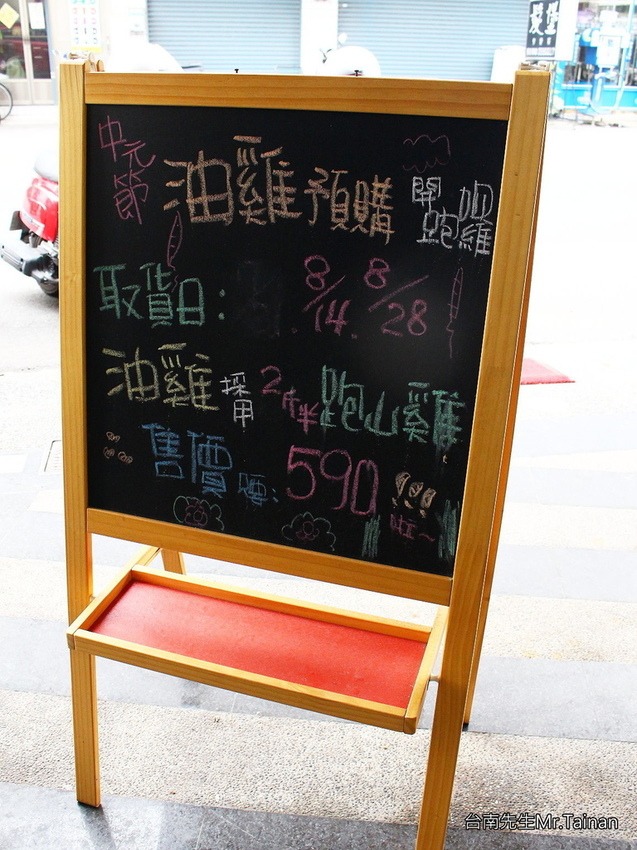 中元節 油雞預購 開跑囉
取貨日: 8/14. 8/28
油雞 採用 2斤半 跑山雞
售價 : 590
髮堡
台南先生Mr.Tainan